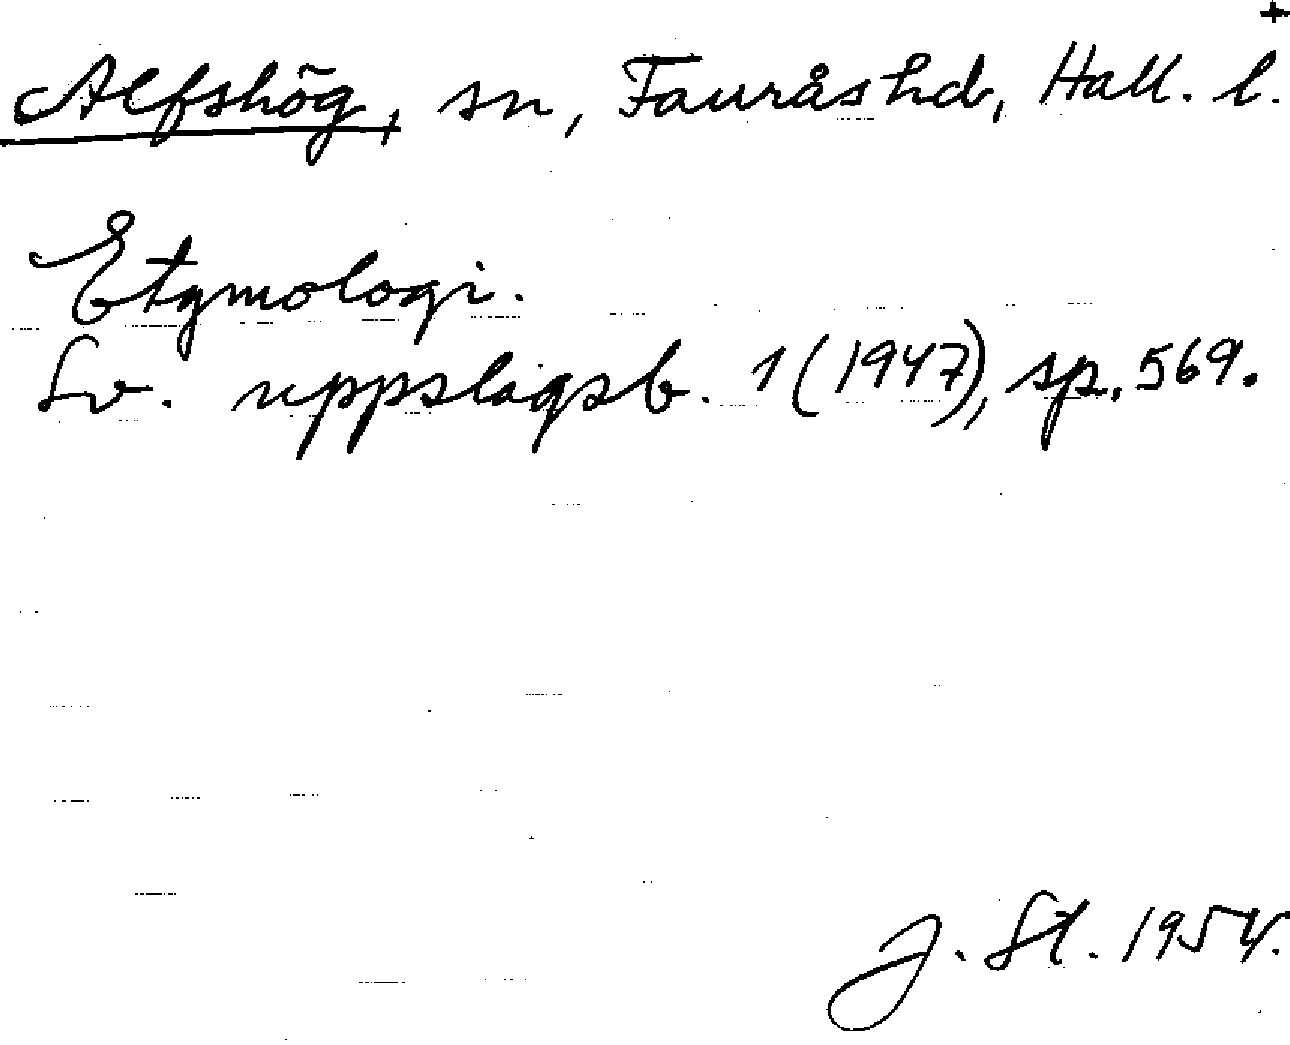 +
Alfshög, sn, Faurås hd, Hall. l.
Etymologi.
Sv. uppslagsb. 1 (1947), sp. 569.
J. St. 1954.